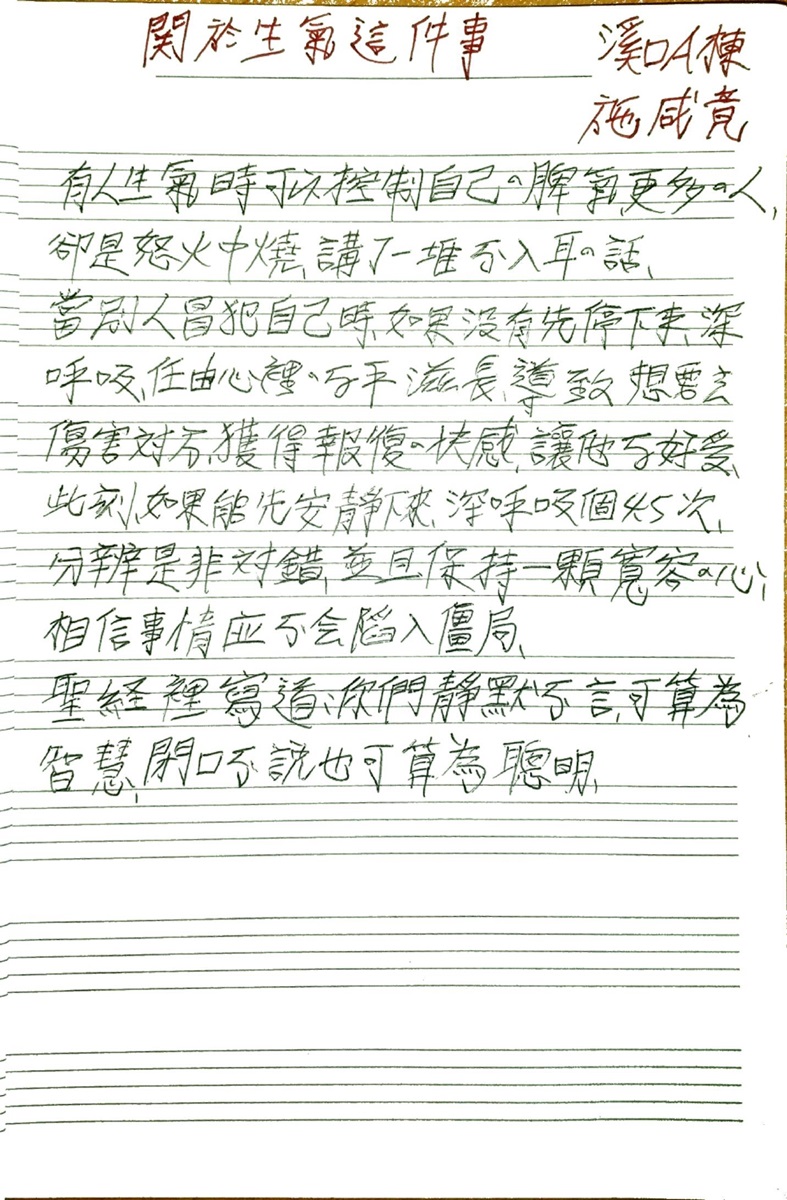 関於生氣這件事 溪口A棟
施咸竟
有人生氣時可以控制自己の脾氣,更多の人,
卻是怒火中燒,講了一堆不入耳の話、
當別人冒犯自己時,如果没有先停下來,深
呼吸,任由心裡の不平滋長,導致想要去
傷害対方,獲得報復の快感,讓他不好受、
此刻,如果能先安靜下來,深呼吸個4.5次,
分辨是非対錯,並且保持一顆寬容の心;
相信事情应不会陷入僵局、
聖経裡寫道:你們靜默不言,可算為
智慧,閉口不說也可算為聰明、